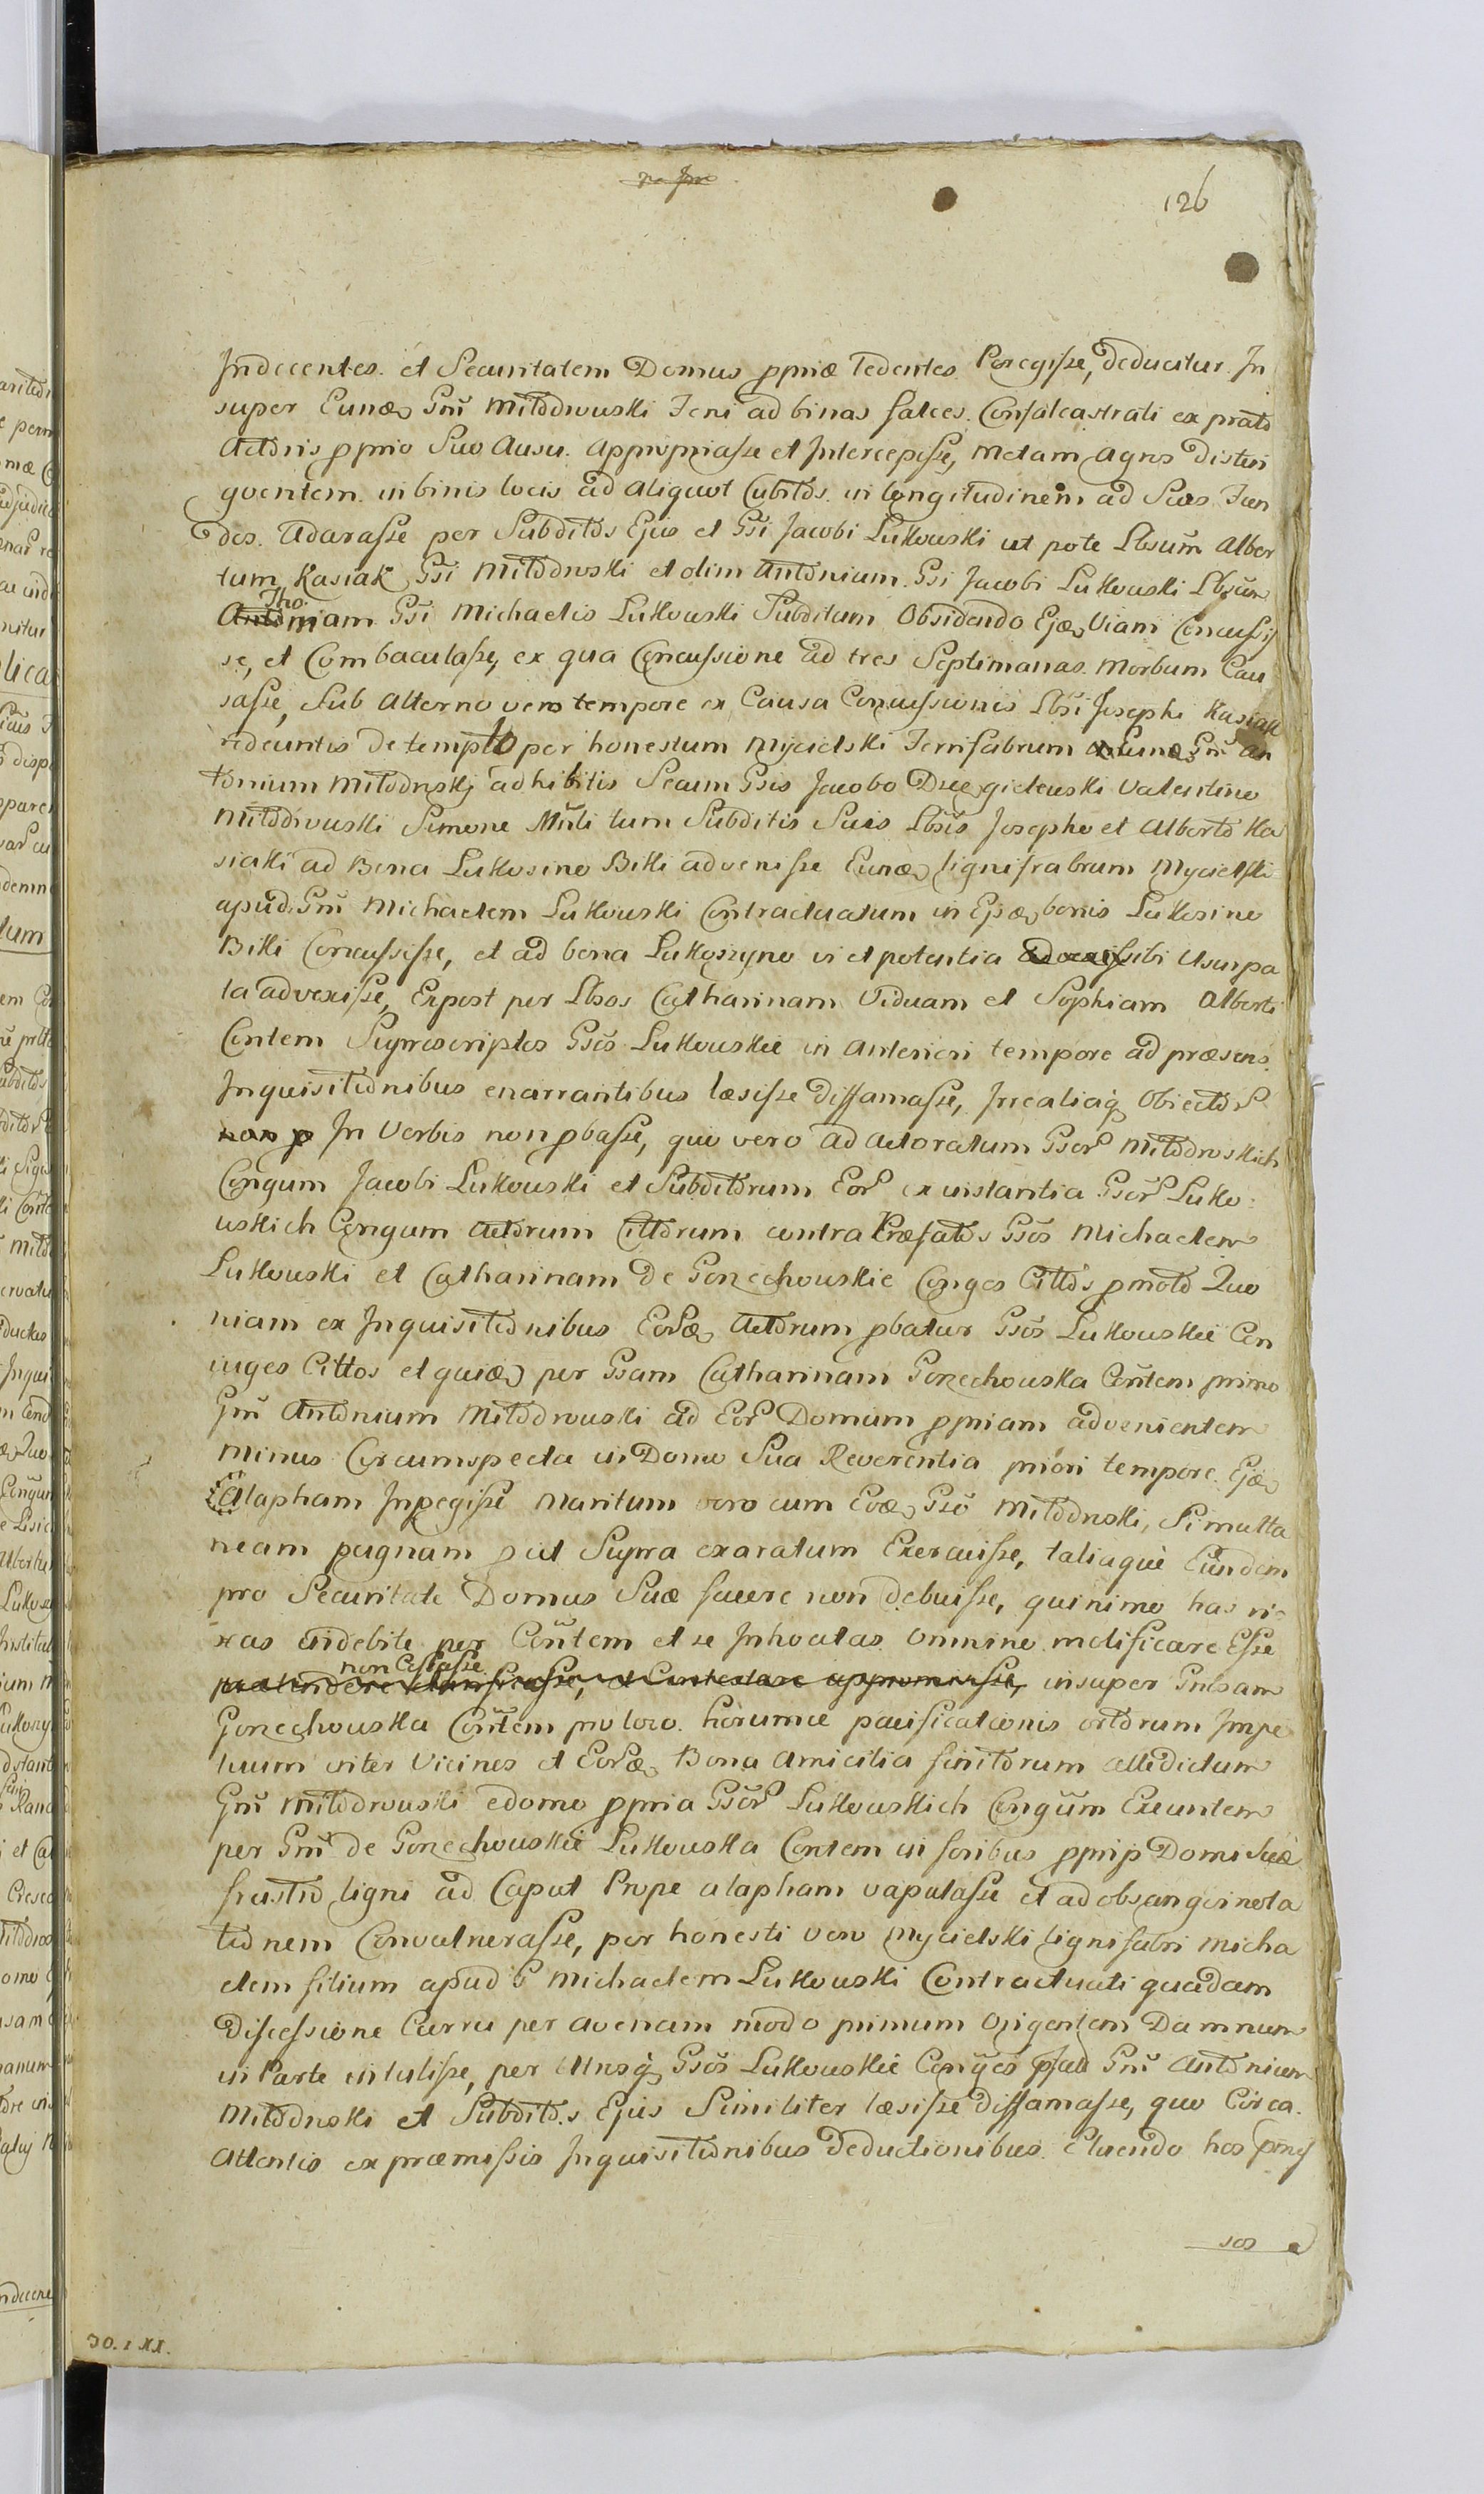 126
Indecentes. et Securitatem Domus ppriæ Tedentes Peregisse, deducitur. In
super Eunæ Gnū Miłodrowski Feni ad binas falces. Confalcastrati ex prato
Actoris pprio Suo Ausu. Appropriasse et Intercepisse, Metam Agros distin
gventem. in binis locis ad aliquot Cubitos. in longitudinem ad Suos Fun
dos. Adarasse per Subditos Ejus et Gsi Jacobi Lukowski ut pote Lbsum Alber
tum Kasiak Gsi Miłodroski et olim Antonium. Gsi Jacobi Lukowski Lbsum
Tho
Antoniam Gsi Michaelis Lukowski Subditum Obsidendo Ejæ Viam Concussis
se, et Combaculasse, ex qua Concussione ad tres Septimanas. Morbum Cau
sasse, Sub Alterno vero tempore ex Causa Concussionis Lbsi Josephi Kasiak
redeuntis de templo per honestum Mycielski Ferrifabrum Eunæ Gnū An
tonium Miłodroski adhibitis Secum Gsis Jacobo Valentino
Miłodrowski Simone tum Subditis Suis Lbsis Josepho et Alberto Ka
siaki ad Bona Lukosino Biki advenisse Eunæ lignifrabrum Mycielski
apud Gnū Michaelem Lukowski Contractuatum in Ejæ bonis Lukosino
Biki Concussisse, et ad bona Lukoszyno vi et potentia sibi Usurpa
ta advexisse, Expost per Lbsos Catharinam Viduam et Sophiam Alberti
Contem Suprascriptos Gsos Lukowskie in Anteriori tempore ad præsens
Inquisitionibus enarrantibus læsisse diffamasse, Objectos
non p In Verbis non pbasse, quo vero ad Actoratum Gsor Miłodroskich
Congum Jacobi Lukowski et Subditorum Eor ex instantia Gsor Luko
wskich Congum Actorum Cittorum contra Præfatos Gsos Michaelem
Lukowski et Catharinam de Gorzechowskie Conges Cittos pmoto Quo
niam ex Inquisitionibus Eoræ Actorum pbatur Gsos Lukowskie Con
iuges Cittos et quidæ per Gsam Catharinam Gorzechowska Contem primo
Gnū Antonium Miłodrowski ad Eor Domum ppriam advenientem
Minus Circumspecta in Domo Sua Reverentia priori tempore Ejæ
Alapham Inpegisse Maritum vero cum Eoæ Gso Miłodroski, Simulta
neam pugnam p ut Supra exaratum Exercuisse, taliaque Eundem
pro Securitate Domus Suæ facere non debuisse, quinimo has ri
xas indebite per Contem et se Inhoatas Omnino molificare Esse
non Cessasse
insuper Gnbsam
Gorzechowska Contem pro loco horumce pacificationis ortorum Impe
tuum inter Vicinos et Eoræ Bona Amicitia finitorum attedictum
Gnū Miłodrowski edomo ppria Gsor Lukowskich Congum Exeuntem
per Gnū de Gorzechowskie Lukowska Contem in foribus pprijs Domi Suæ
frusto ligni ad Caput Prope alapham vapulasse et ad obsangvinola
tionem Convulnerasse, per honesti vero Mycielski lignifabri Micha
elem filium apud G Michaelem Lukowski Contractuati quadam
discessione Curru per Avenam modo primum Damnum
in Parte intulisse, per Utrosq Gsos Lukowskie Conges Gnū Antonium
Miłodroski et Subditos Ejus Similiter læsisse diffamasse, quo Circa.
Attentis ex præmissis Inquisitionibus Deductionibus. Eluendo hos
sos
30. I XX.